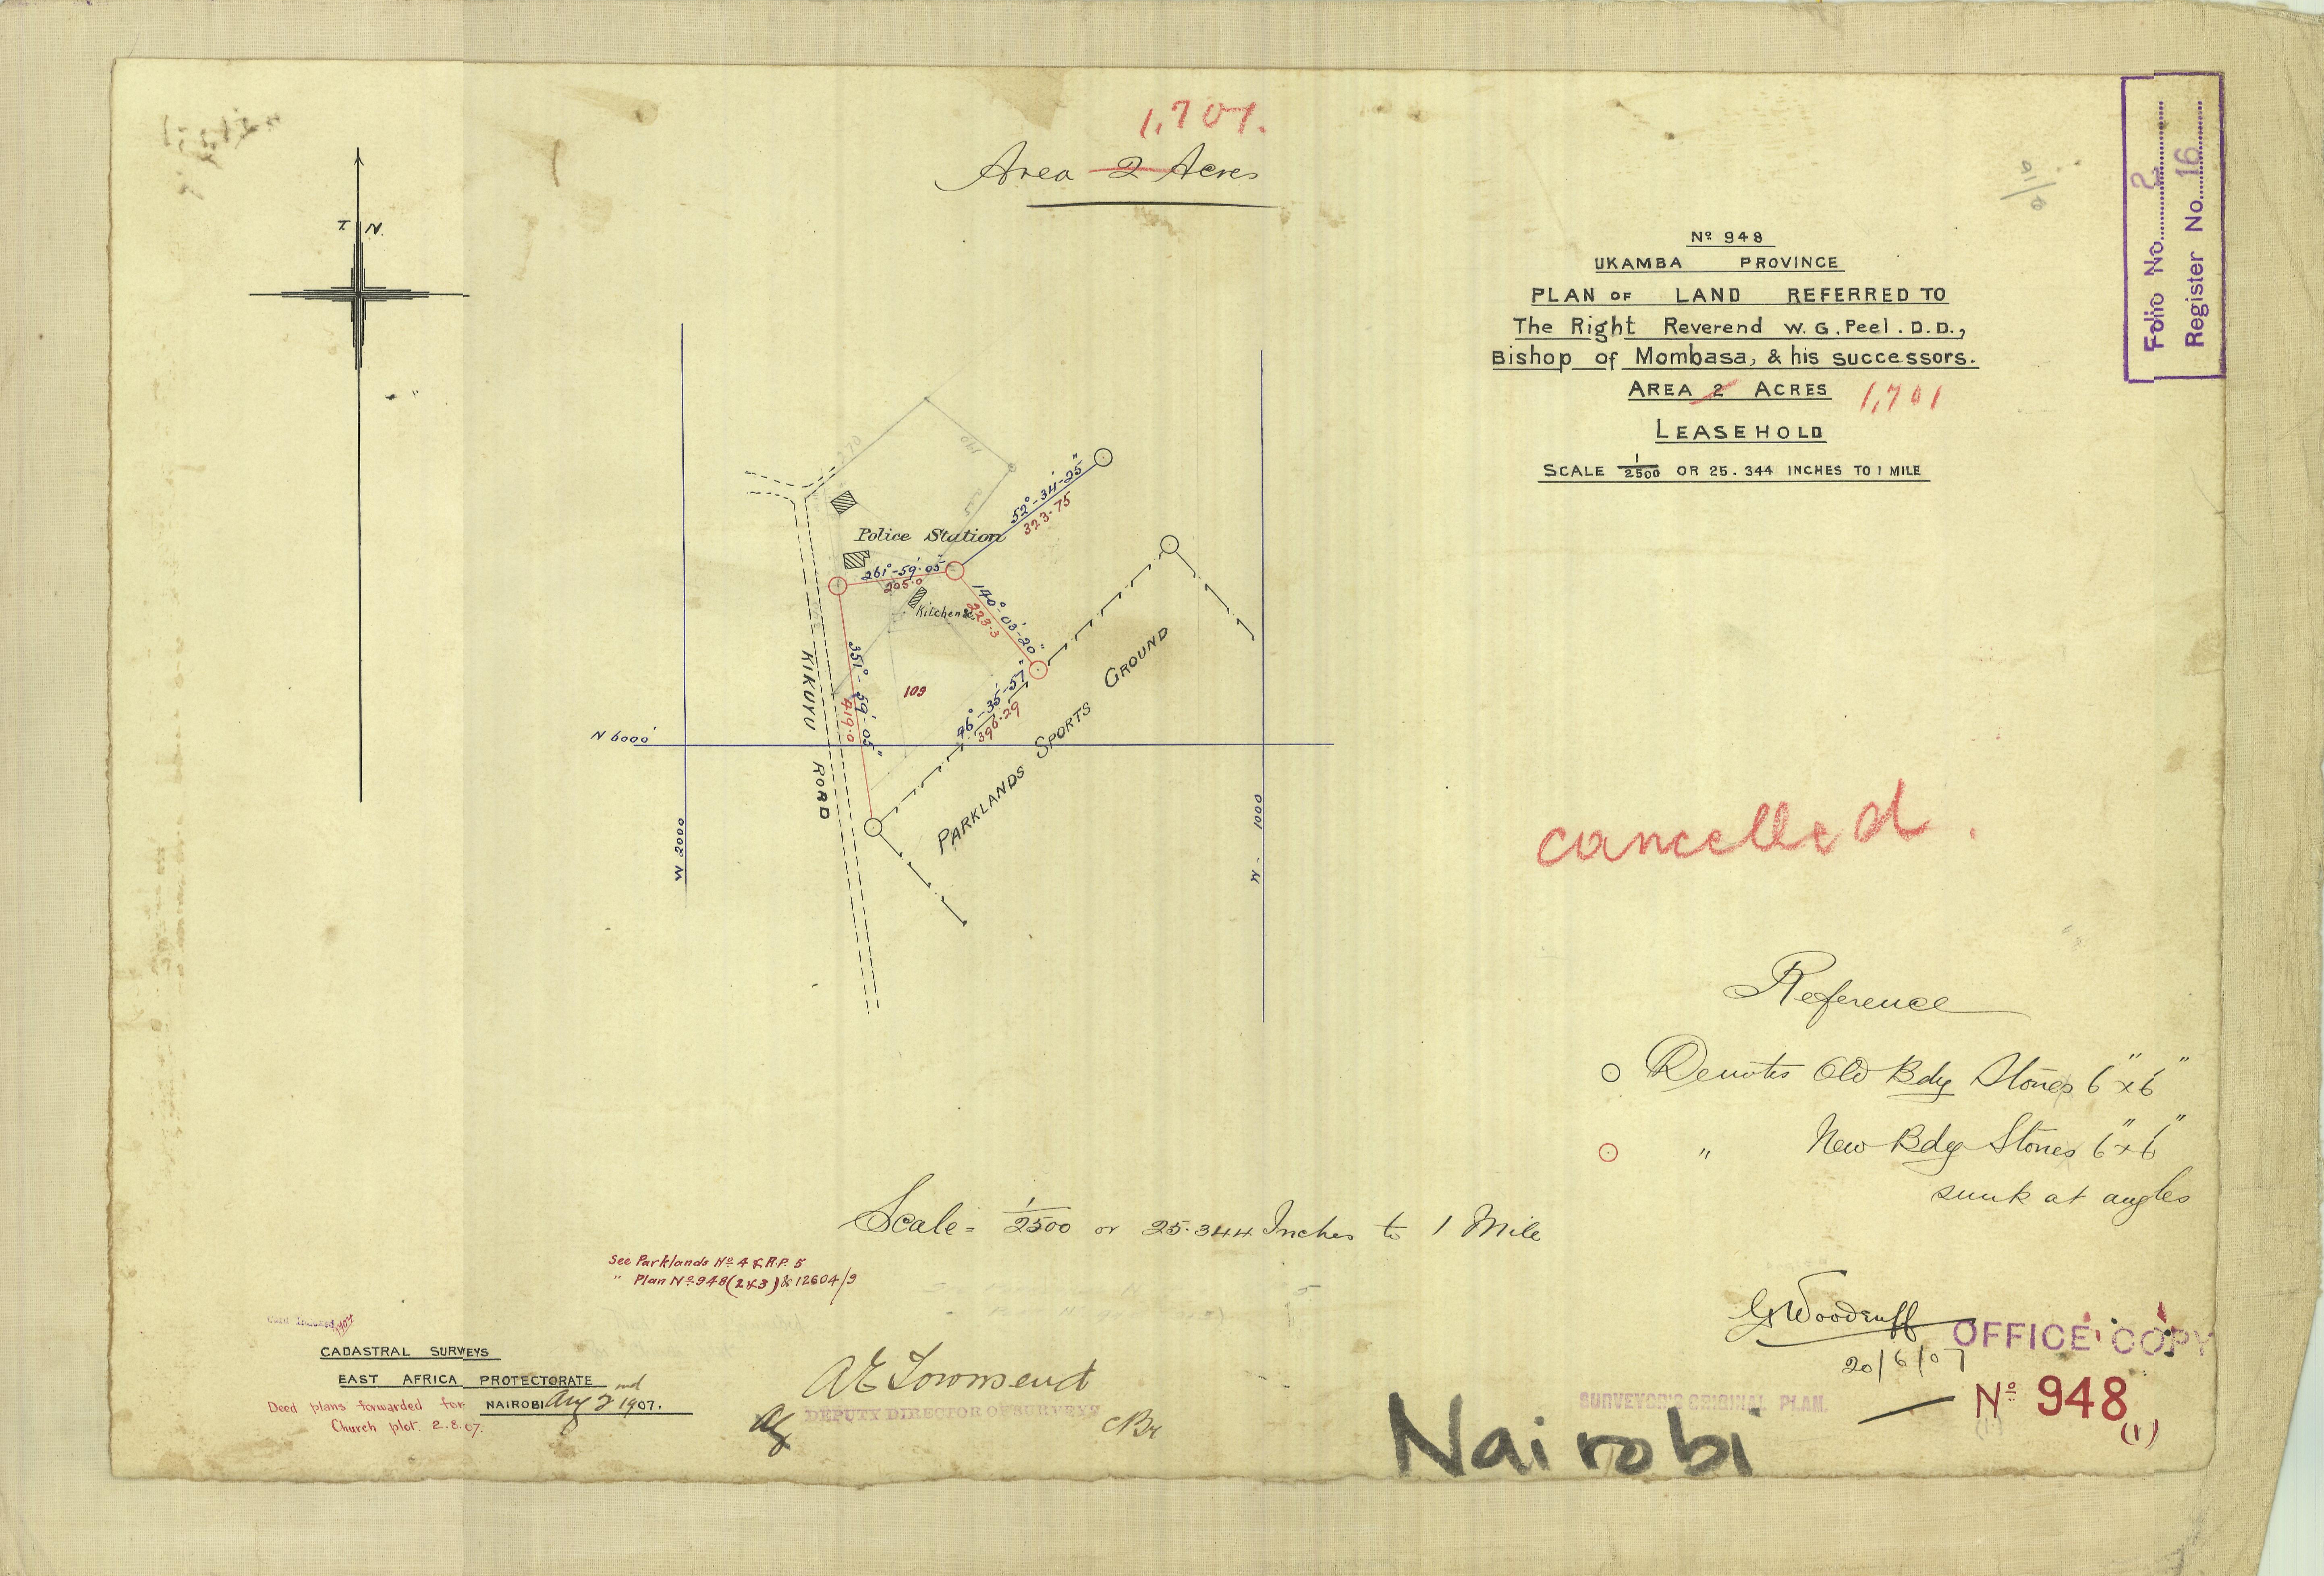 1,701.
Area 2 Acres
T. N.
Nº 948
UKAMBA PROVINCE
PLAN OF LAND REFERRED TO
The Right Reverend W. G. Peel. D.D.,
Bishop of Mombasa, & his successors.
AREA 2 ACRES 1,701
LEASEHOLD
SCALE 1/2500 OR 25.344 INCHES TO 1 MILE
Folio No. 2
Register No. 16
270
140
52°-34'-25"
323.75
Police Station
261°-59'-05"
205.0
Kitchen &c.
140°-03'-20"
223.3
351°-59'-05"
419.0
109
46°-35'-57"
396.29
KIKUYU ROAD
PARKLANDS SPORTS GROUND
N 6000'
W 2000
W 1000
cancelled.
Reference
Denotes Old Bdy Stones 6"x6"
" New Bdy Stones 6"x6"
sunk at angles
Scale = 1/2500 or 25.344 Inches to 1 Mile
See Parklands Nº 4 & R.P. 5
" Plan Nº 948 (2&3) & 12604/9
CADASTRAL SURVEYS
EAST AFRICA PROTECTORATE
NAIROBI Aug 2nd 1907.
Deed plans forwarded for
Church plot. 2.8.07.
A E Townsend
DEPUTY DIRECTOR OF SURVEYS
G Woodruff
20/6/07
OFFICE COPY
SURVEYOR'S ORIGINAL PLAN.
Nº 948 (1)
Nairobi